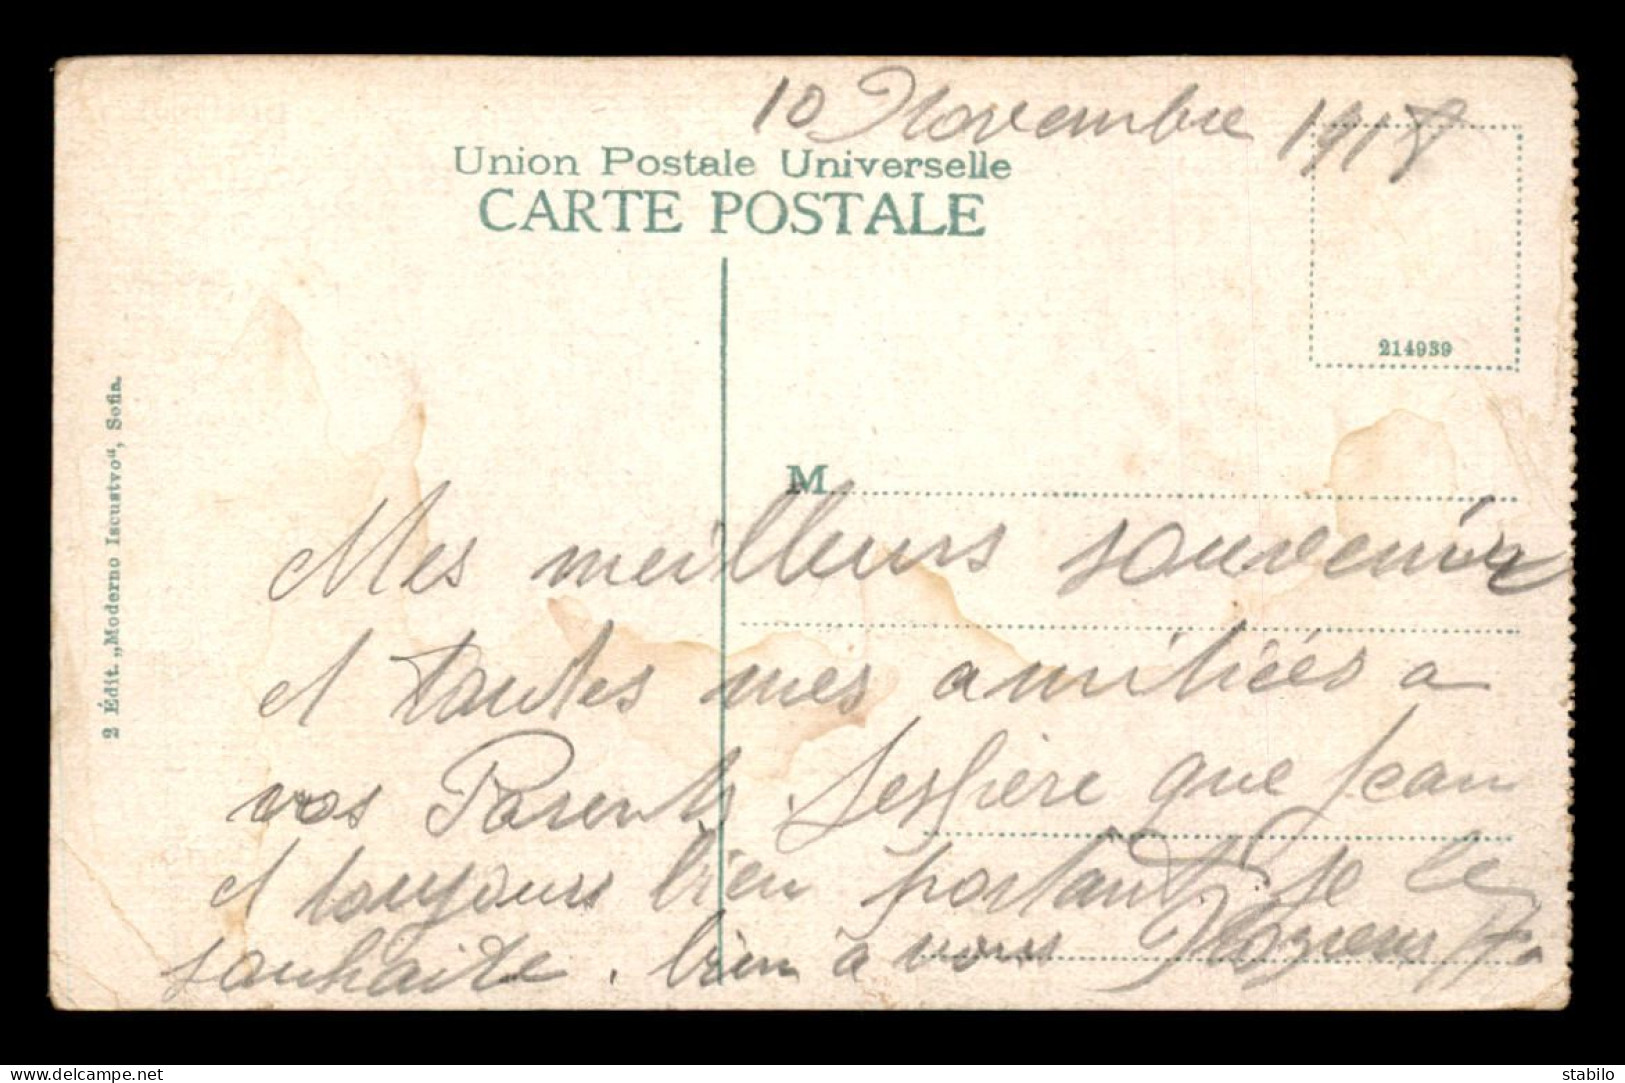 10 Novembre 1918
Union Postale Universelle
CARTE POSTALE
214939
M
2 Édit. „Moderno Iscustvo“, Sofia.
Mes meilleurs souvenir
et toutes mes amitiés a
vos Parents. J'espère que Jean
et toujours bien portant. Je le
souhaite. bien à vous
www.delcampe.net
stabilo